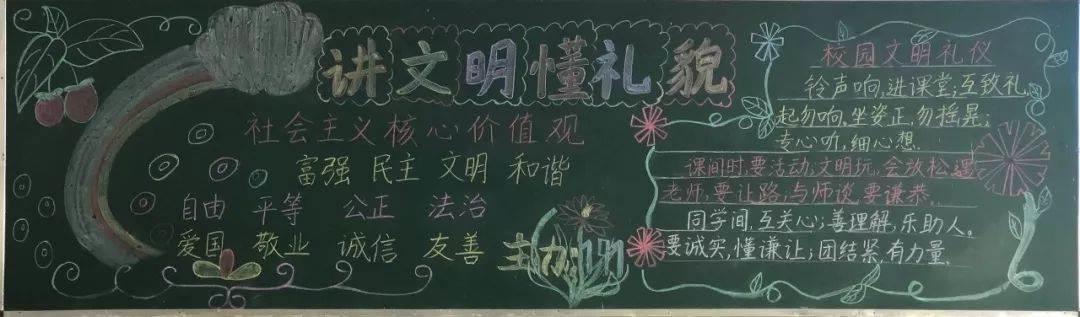 讲文明懂礼貌
社会主义核心价值观
富强 民主 文明 和谐
自由 平等 公正 法治
爱国 敬业 诚信 友善
主办:
校园文明礼仪
铃声响,进课堂;互致礼,
起勿响,坐姿正,勿摇晃;
专心听,细心想.
课间时,要活动;文明玩,会放松;遇
老师,要让路,与师谈,要谦恭.
同学间,互关心;善理解,乐助人。
要诚实,懂谦让;团结紧,有力量.